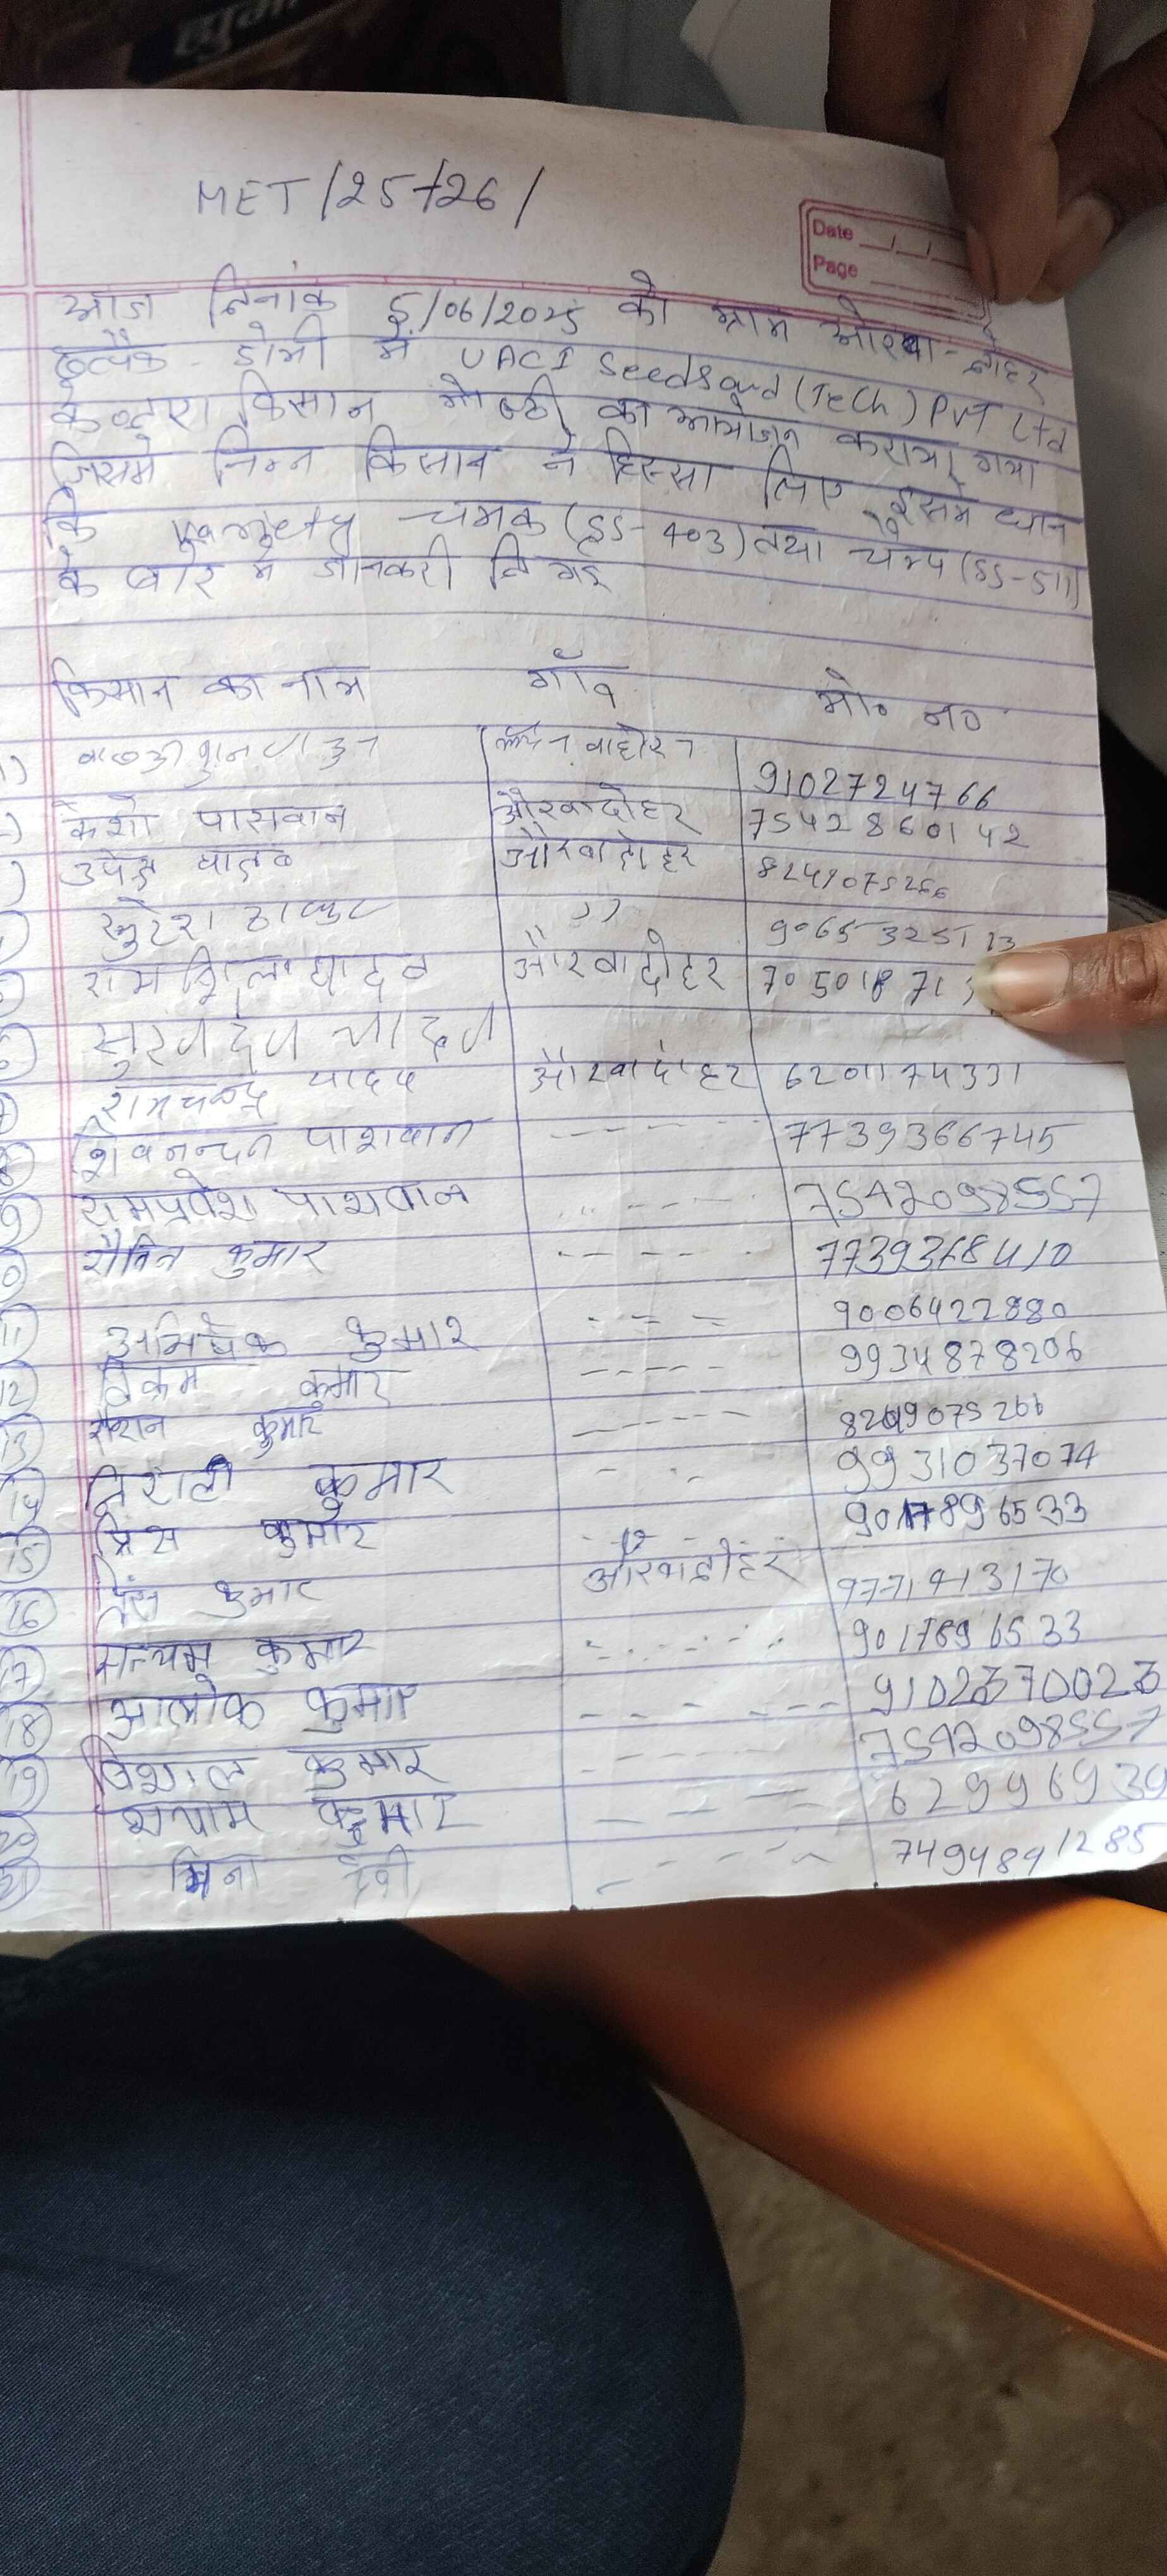 MET/25-26/
Date
Page
आज दिनांक 5/06/2025 को ग्राम औरवा-दोहर
डोभी में UACI Seeds and (Tech) PVT Ltd
के द्वारा किसान गोष्ठी का आयोजन कराया गया
जिसमे निम्न किसान ने हिस्सा लिए इसमे धान
कि चमक (SS-403) तथा चम्प (SS-511)
के बारे मे जानकारी दि गई
किसान का नाम गाँव मो० न०
9102724766
केशो पासवान औरवादोहर 7542860142
उपेन्द्र यादव औरवादोहर 8249075266
सुरेश ठाकुर ,, 9065325113
रामशिला यादव औरवादोहर 70501871
सुखदेव यादव
रामचन्द्र यादव औरवादोहर 6201174331
शिवनन्दन पाशवान 7739366745
रामप्रवेश पाशवान 7542098557
कुमार 7739368410
11 अभिषेक कुमार 9006422880
12 विक्रम कुमार 9934878206
13 रौशन कुमार 8249075266
14 कुमार 9931037074
15 प्रिंस कुमार 9017896533
16 कुमार औरवादोहर 9771413170
17 सत्यम कुमार 9017896533
18 आलोक कुमार 9102370023
19 विशाल कुमार 7542098557
20 श्याम कुमार 62996939
21 मिना देवी 7494891285